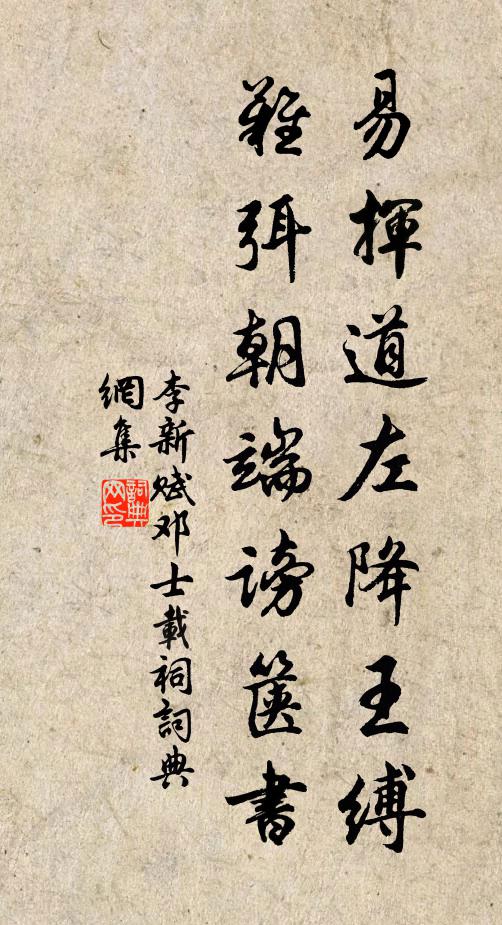 易揮道左降王縛
難弭朝端謗篋書
李新賦邓士載祠詞典
網集
詞典
网印